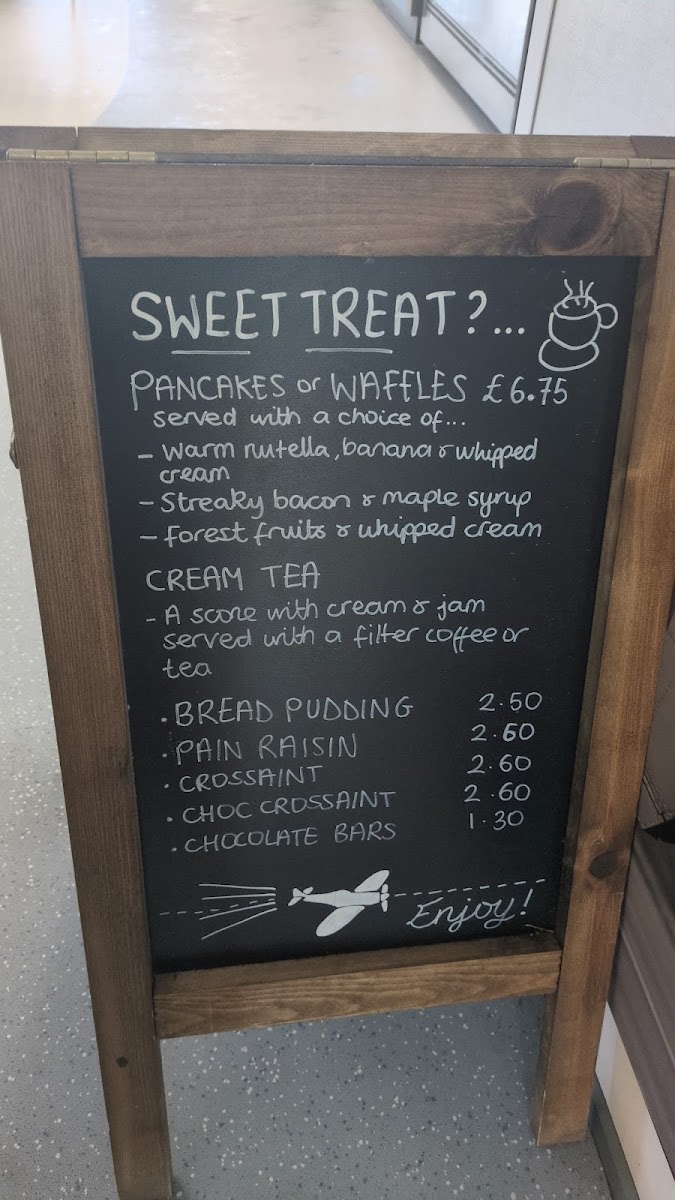 SWEET TREAT?...
PANCAKES or WAFFLES £6.75
served with a choice of...
- Warm nutella, banana & whipped
cream
- Streaky bacon & maple syrup
- Forest fruits & whipped cream
CREAM TEA
- A scone with cream & jam
served with a filter coffee or
tea
. BREAD PUDDING 2.50
. PAIN RAISIN 2.60
. CROSSAINT 2.60
. CHOC CROSSAINT 2.60
. CHOCOLATE BARS 1.30
Enjoy!